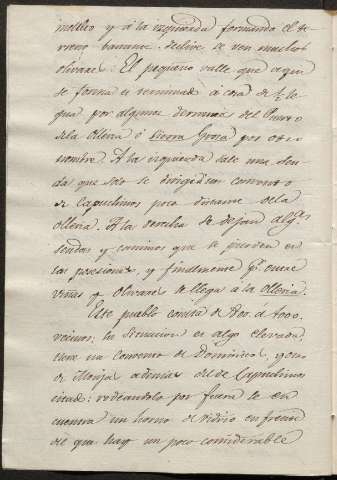 molleo y á la izquierda formando el te-
rreno barranc. declive se ven muchos
olivares. El pequeño valle que aqui
se forma es terminado á cosa de ½ le
gua por algunas derramas del Puerto
de la Olleria ó Sierra Grosa por otro
nombre. A la izquierda sale una sen-
da que solo se dirige al convento
de Capuchinos poco distante de la
Olleria. A la derecha se dejan algs.
sendas y caminos que se pierden en
las posesiones, y finalmente pr. entre
viñas y olivares se llega á la Olleria.
Este pueblo consta de 800 á 1000
vecinos: su situacion es algo elevada,
tiene un Convento de Dominicos, y otro
de Monjas ademas del de Capuchinos
citado: rodeandolo por fuera se en
cuentra un horno de vidrio en frente
del que hay un pozo considerable